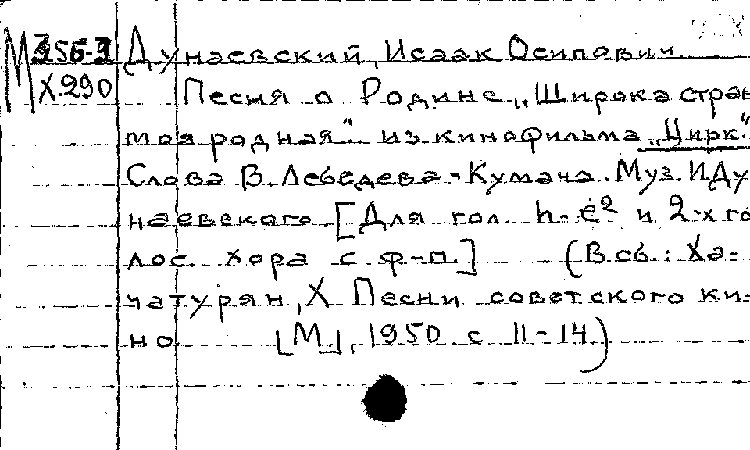 М 356-3 Дунаевский, Исаак Осипович
Х.290 Песня о Родине „Широка стран
моя родная" из кинофильма „Цирк."
Слова В. Лебедева-Кумача. Муз. И.Ду
наевского [Для гол. h-e² и 2-х го
лос. хора с ф-п.] (В сб.: Ха-
чатурян, Х Песни советского ки-
но [М], 1950 с 11-14)